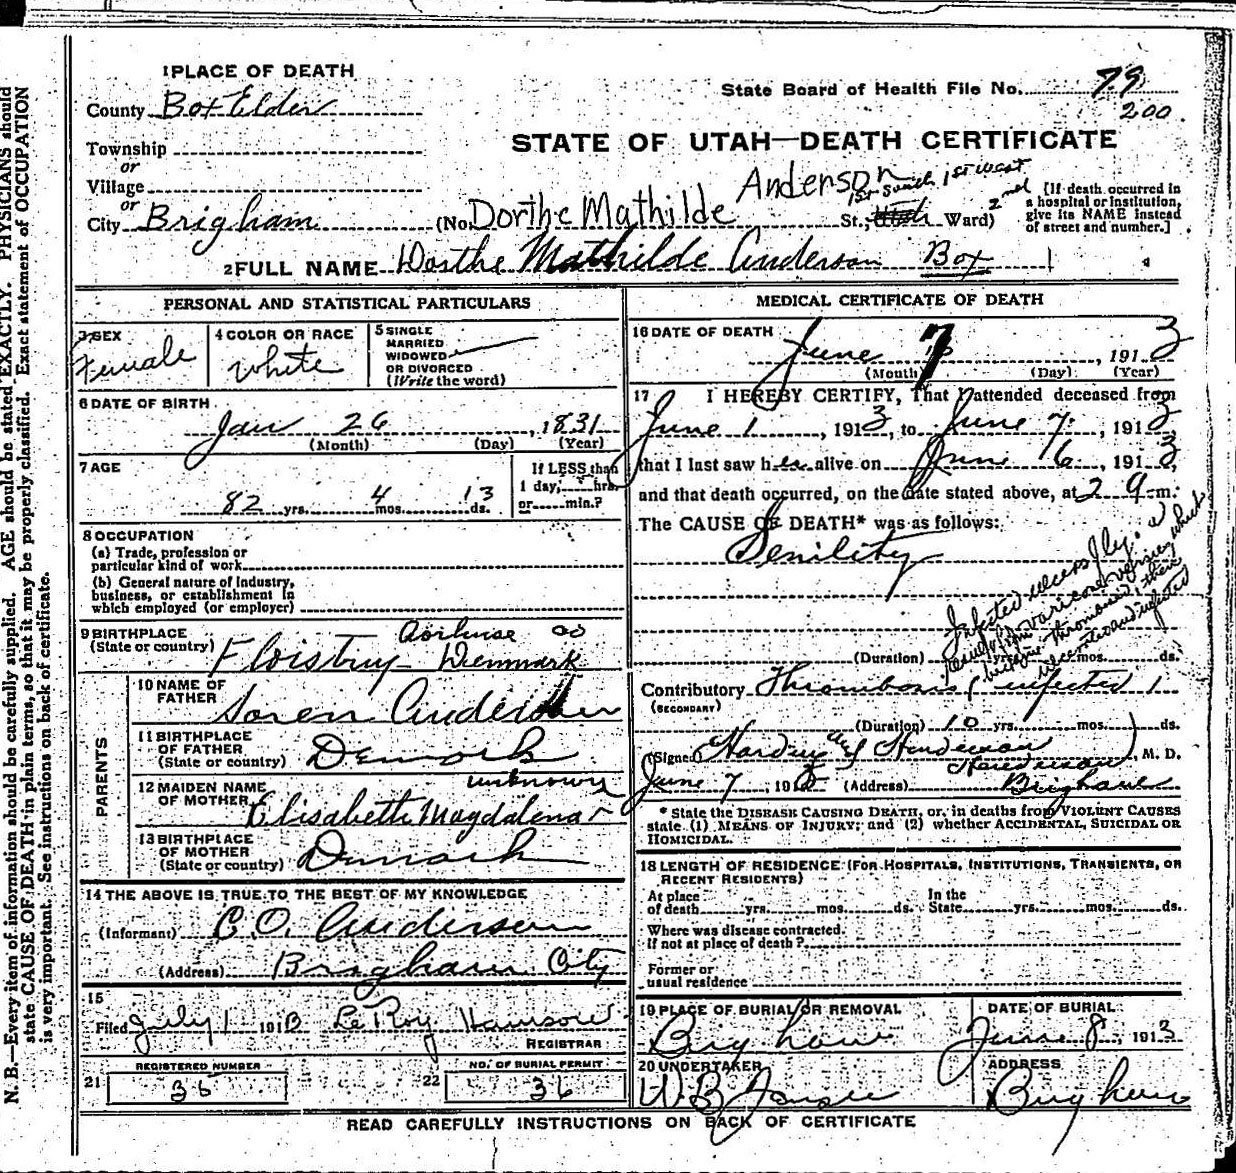 1 PLACE OF DEATH
State Board of Health File No. 79
County Box Elder
200
STATE OF UTAH—DEATH CERTIFICATE
Township
or
Village
or
City Brigham (No. Dorthe Mathilde Anderson 1st South 1st West St.; Ward) 2nd
[If death occurred in
a hospital or institution,
give its NAME instead
of street and number.]
2 FULL NAME Dorthe Mathilde Anderson Box
PERSONAL AND STATISTICAL PARTICULARS
3 SEX
Female
4 COLOR OR RACE
White
5 SINGLE
MARRIED
WIDOWED
OR DIVORCED
(Write the word)
6 DATE OF BIRTH
Jan 26, 1831
(Month) (Day) (Year)
7 AGE
82 yrs. 4 mos. 13 ds.
If LESS than
1 day, hrs.
or min.?
8 OCCUPATION
(a) Trade, profession or
particular kind of work
(b) General nature of Industry,
business, or establishment in
which employed (or employer)
9 BIRTHPLACE
(State or country)
Denmark
PARENTS
10 NAME OF
FATHER
Soren Anderson
11 BIRTHPLACE
OF FATHER
(State or country)
Denmark
12 MAIDEN NAME
OF MOTHER
unknown
Elisabeth Magdalena
13 BIRTHPLACE
OF MOTHER
(State or country)
Denmark
14 THE ABOVE IS TRUE TO THE BEST OF MY KNOWLEDGE
(Informant) C.O. Anderson
(Address) Brigham City
15
Filed July 1 1913 LeRoy
REGISTRAR
REGISTERED NUMBER
21 36
NO. OF BURIAL PERMIT
22 36
MEDICAL CERTIFICATE OF DEATH
16 DATE OF DEATH
June 7, 1913
(Month) (Day) (Year)
17 I HEREBY CERTIFY, That I attended deceased from
June 1, 1913, to June 7, 1913
that I last saw her alive on June 6, 1913,
and that death occurred, on the date stated above, at 2 9 m.
The CAUSE OF DEATH* was as follows:
Senility
Infected ulcers
result from varicose veins which
became thrombosed, then
ulcerated and infected
(Duration) yrs. mos. ds.
Contributory Thrombosis infected
(SECONDARY)
(Duration) 10 yrs. mos. ds.
(Signed) Harding M. D.
June 7, 1913 (Address) Brigham
* State the DISEASE CAUSING DEATH, or, in deaths from VIOLENT CAUSES
state (1) MEANS OF INJURY; and (2) whether ACCIDENTAL, SUICIDAL OR
HOMICIDAL.
18 LENGTH OF RESIDENCE (FOR HOSPITALS, INSTITUTIONS, TRANSIENTS, OR
RECENT RESIDENTS)
At place
of death yrs. mos. ds.
In the
State yrs. mos. ds.
Where was disease contracted.
If not at place of death?
Former or
usual residence
19 PLACE OF BURIAL OR REMOVAL
Brigham
DATE OF BURIAL
June 8, 1913
20 UNDERTAKER
W.B.
ADDRESS
Brigham
READ CAREFULLY INSTRUCTIONS ON BACK OF CERTIFICATE
N. B.—Every item of information should be carefully supplied. AGE should be stated EXACTLY. PHYSICIANS should
state CAUSE OF DEATH in plain terms, so that it may be properly classified. Exact statement of OCCUPATION
is very important. See instructions on back of certificate.